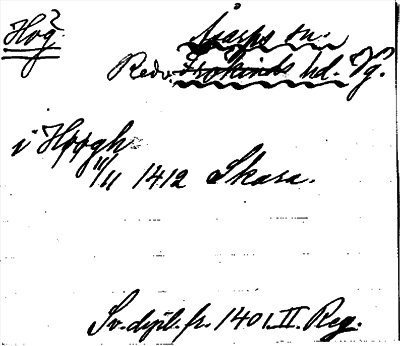 Hög Sjarps sn.
Redv. Frökinds hd. Vg.
i Høøgh
11/11 1412 Skara.
Sv. dipl. fr. 1401. II. Reg.